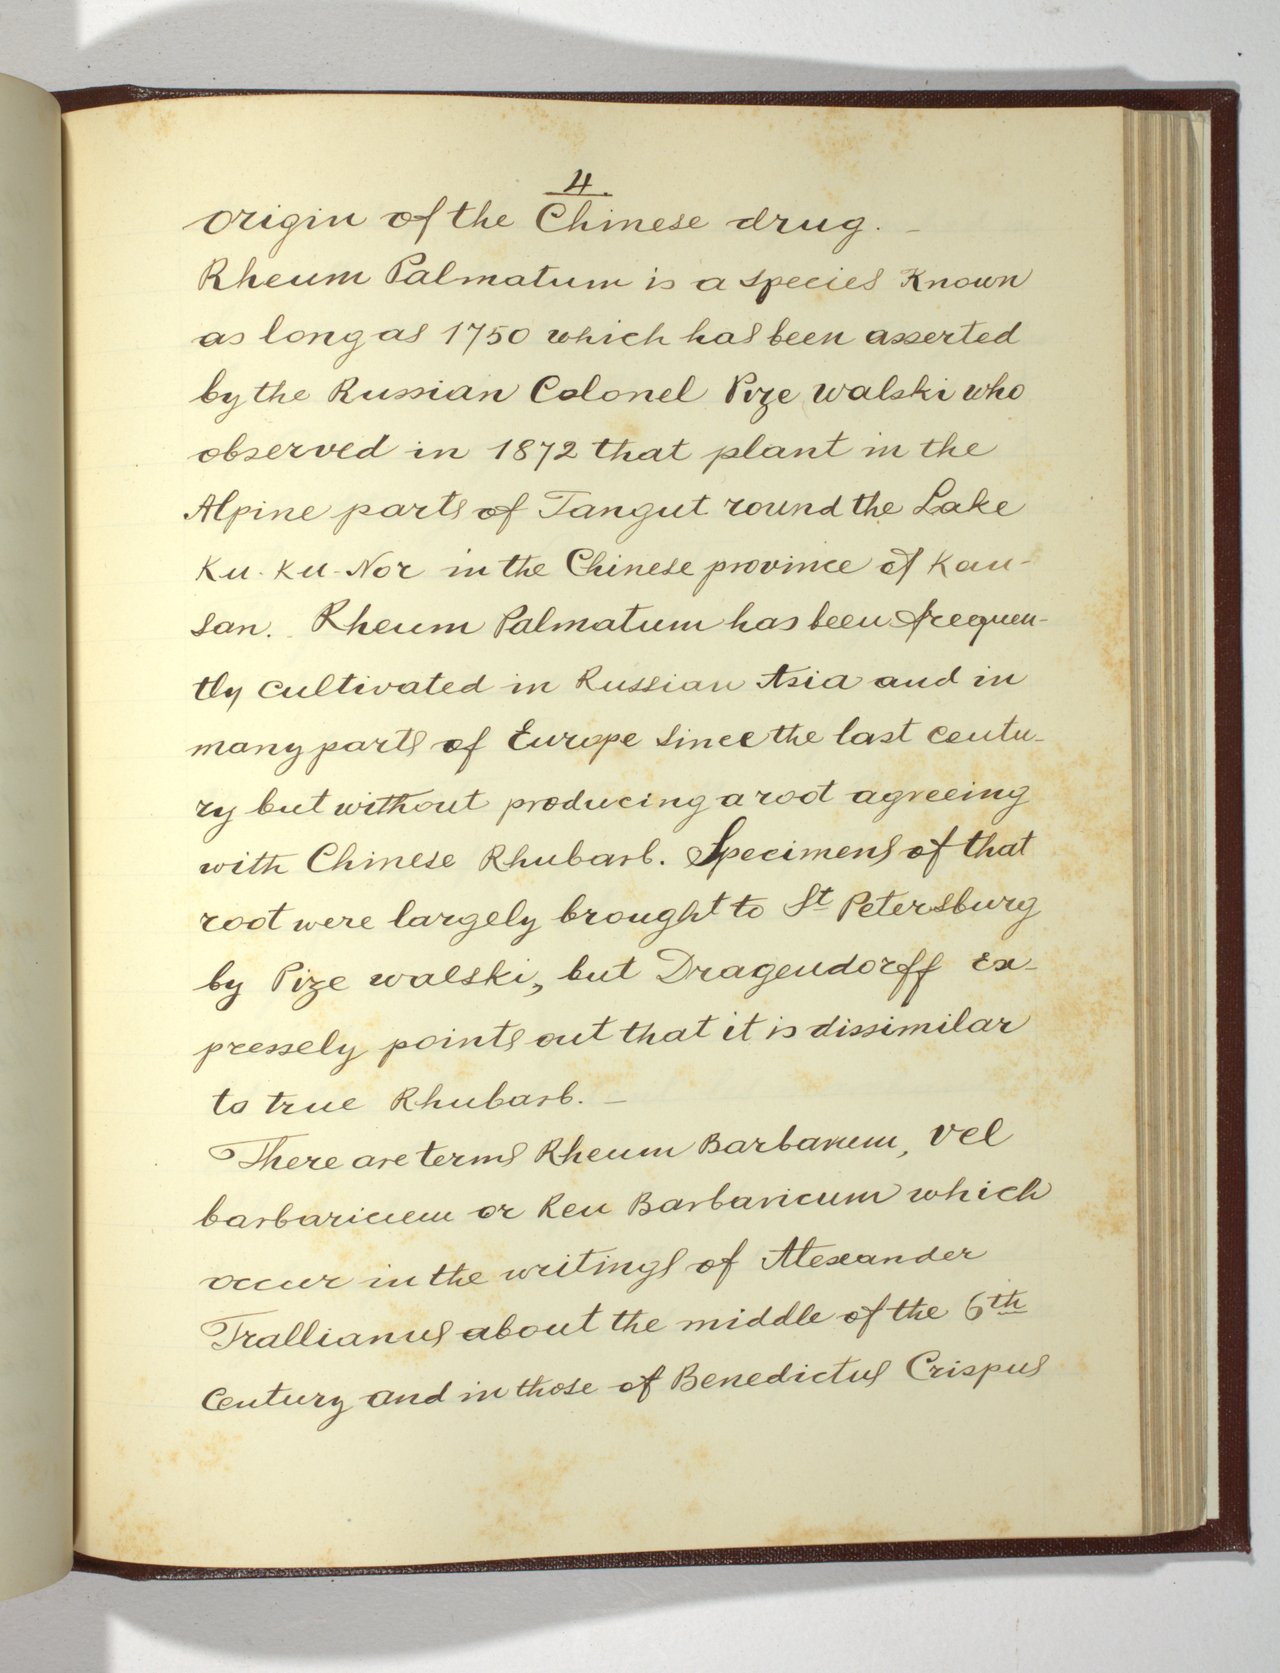 4.
origin of the Chinese drug. -
Rheum Palmatum is a species Known
as long as 1750 which has been asserted
by the Russian Colonel Pize walski who
observed in 1872 that plant in the
Alpine parts of Tangut round the Lake
Ku-Ku-Nor in the Chinese province of Kau-
san. Rheum Palmatum has been frequen-
tly cultivated in Russian Asia and in
many parts of Europe since the last centu-
ry but without producing a root agreeing
with Chinese Rhubarb. Specimens of that
root were largely brought to St Petersburg
by Pize walski, but Dragendorff ex-
pressely points out that it is dissimilar
to true Rhubarb. -
There are terms Rheum Barbarum, vel
barbaricum or Reu Barbaricum which
occur in the writings of Alexander
Trallianus about the middle of the 6th
Century and in those of Benedictus Crispus